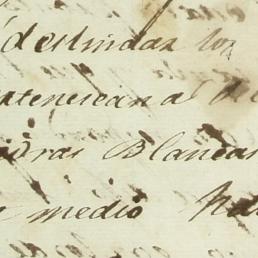 deslindar los
rtenecian al de
dras Blancas
medio